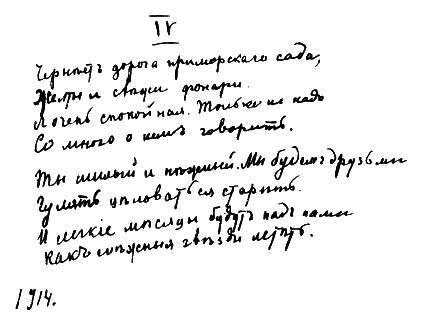 IV
Чернѣетъ дорога приморскаго сада,
Желты и свѣжи фонари.
Я очень спокойная. Только не надо
Со мною о немъ говорить.
Ты милый и нѣжный. Мы будемъ друзьями
Гулять цѣловаться старѣть.
И легкіе мѣсяцы будутъ надъ нами
Какъ снѣжныя звѣзды летѣть.
1914.